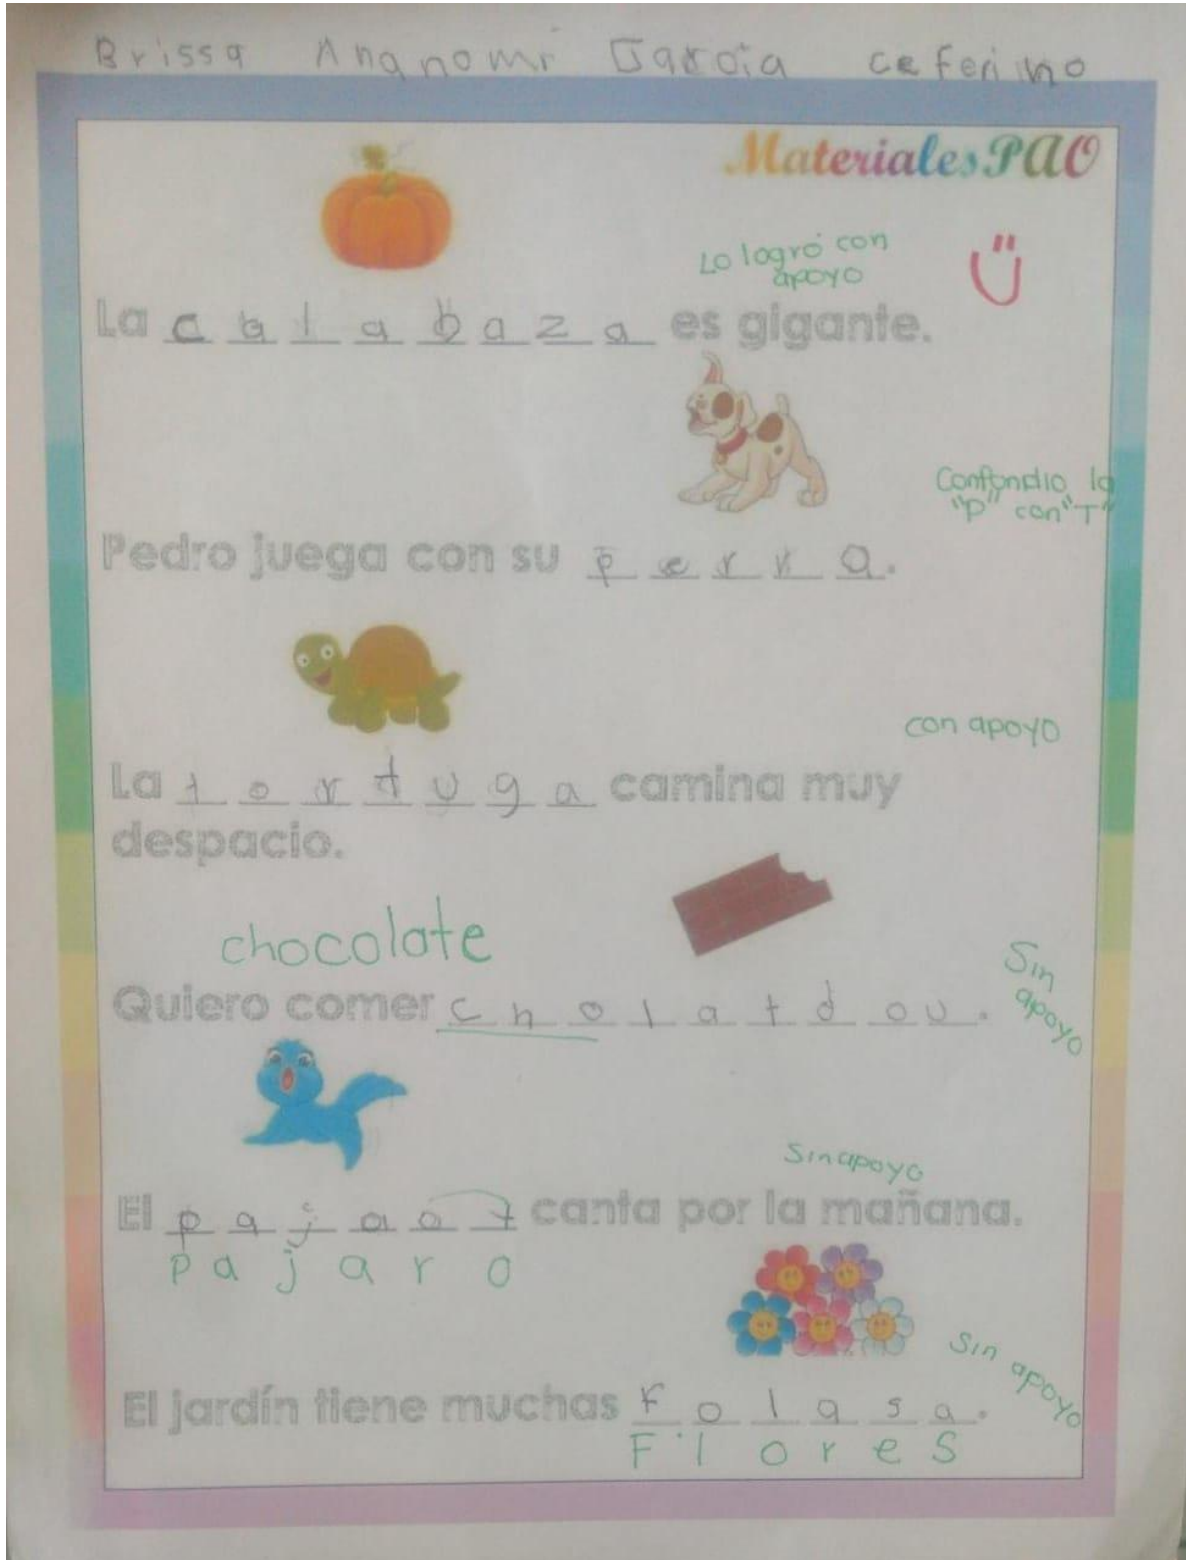 Brissa Ananomi García ceferino
MaterialesPAO
Lo logró con
apoyo
La calabaza es gigante.
Confondio la
"P" con "T"
Pedro juega con su perra.
con apoyo
La tortuga camina muy
despacio.
chocolate
Sin
apoyo
Quiero comer cholatdou.
Sin apoyo
El pajaot canta por la mañana.
pajaro
Sin apoyo
El jardín tiene muchas folasa.
Flores